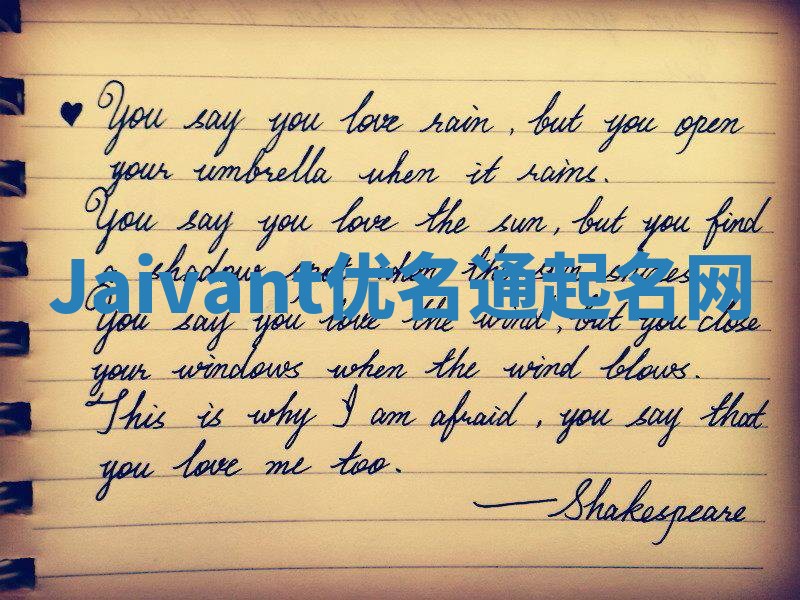 ♥ You say you love rain, but you open
your umbrella when it rains.
You say you love the sun, but you find
a shadow spot when the sun shines
Jaivant优名通起名网
You say you love the wind, but you close
your windows when the wind blows.
This is why I am afraid, you say that
you love me too.
—Shakespeare